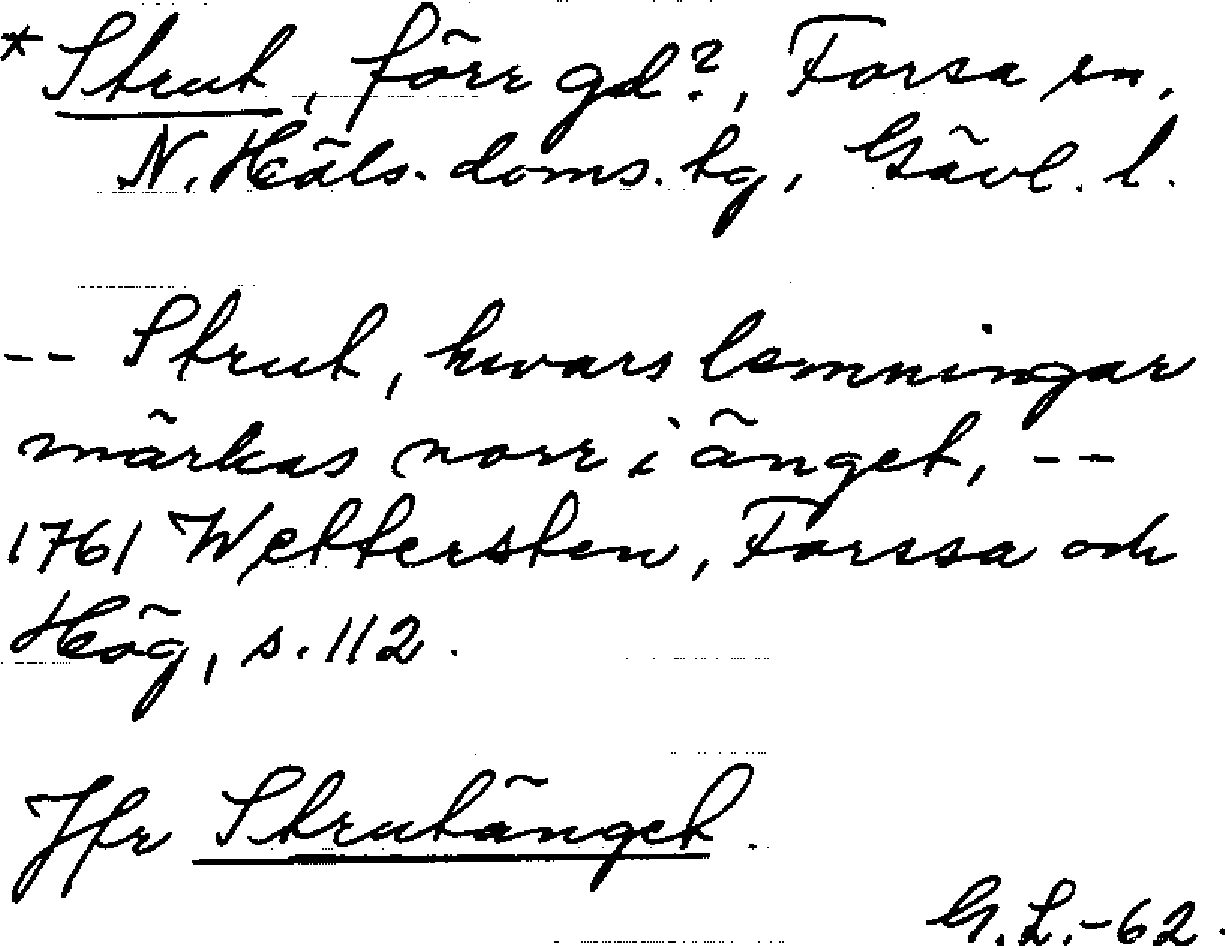 * Strut, förr gd?, Forsa sn,
N. Häls. doms. hg, Gävl. l.
-- Strut, hwars lemningar
märkas norr i änget, --
1761 Wettersten, Forssa och
Hög, s. 112.
Jfr Strutänget.
G. L. -62.